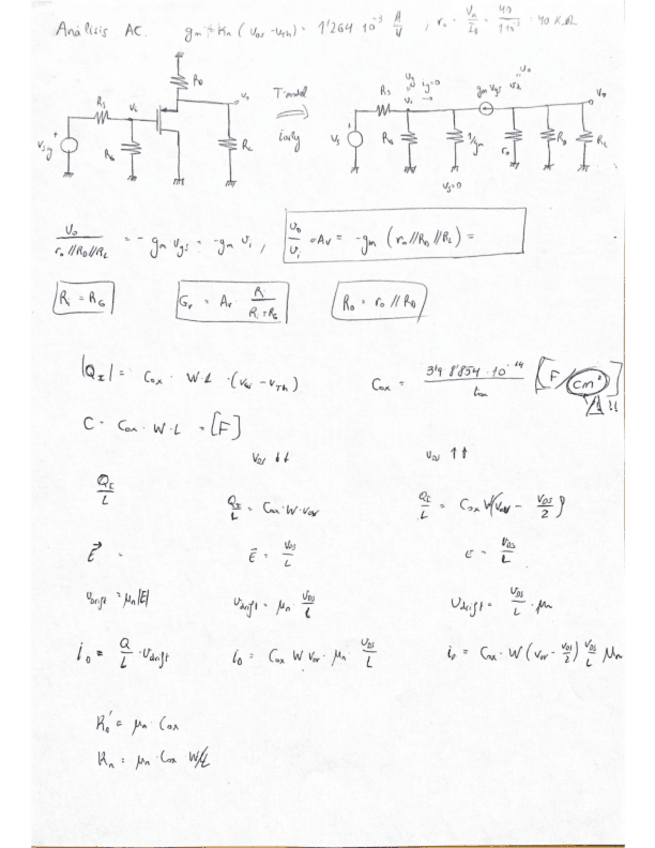 Análisis AC. gm = Kn (vGS - vTh) = 1'264 · 10⁻³ A/V , ro = VA/ID = 40/1·10⁻³ = 40 KΩ
RD
vo
RS
vi
vsg
RG
RL
T model
Early
RS
vg
ig=0
vi
gm vgs
vo
vs
RG
1/gm
ro
RD
RL
vs=0
vo / ro//RD//RL = - gm vgs = -gm vi , vo/vi = Av = -gm (ro//RD//RL) =
Ri = RG
Gv = Av · Ri
Ro = ro // RD
|QI| = Cox · W·L ·( - vTh) Cox = 3'9 · 8'854 · 10⁻¹⁴ / tox [F/cm²]
C = Cox · W·L = [F]
vDS ↓↓ vDS ↑↑
QI/L QI/L = Cox·W·vov QI/L = Cox W(vov - vDS/2)
E⃗ = E⃗ = vDS/L E = vDS/L
vdrift = μn|E| vdrift = μn · vDS/L vdrift = vDS/L · μn
iD = Q/L · vdrift iD = Cox W vov · μn vDS/L iD = Cox · W (vov - vDS/2) vDS/L μn
= μn · Cox
Kn = μn · Cox W/L